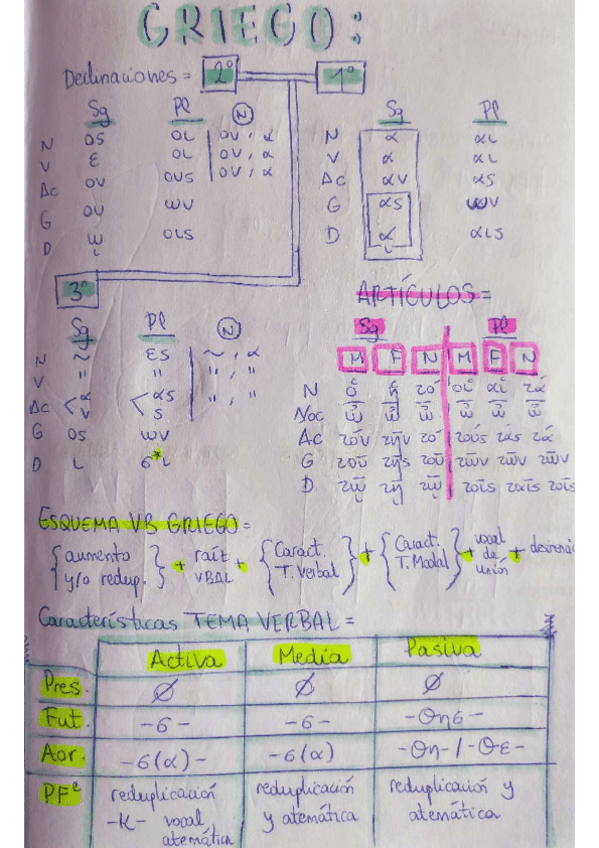 GRIEGO:
Declinaciones = 2º 1º
Sg Pl N Sg Pl
N os οι ον, α N α αι
V ε οι ον, α V α αι
Ac ον ους ον, α Ac αν ας
G ου ων G ας ων
D ῳ οις D ᾳ αις
3º
ARTÍCULOS =
Sg Pl N
Sg Pl
M F N M F N
N ~ ες ~, α
V " " ", "
Ac < α ν < ας ς ", "
G ος ων
D ι σ*ι
N ὁ ἡ τό οἱ αἱ τά
Voc ὦ ὦ ὦ ὦ ὦ ὦ
Ac τόν τήν τό τούς τάς τά
G τοῦ τῆς τοῦ τῶν τῶν τῶν
D τῷ τῇ τῷ τοῖς ταῖς τοῖς
ESQUEMA VB GRIEGO =
{aumento y/o redup.} + raíz VBAL + {Caract. T. Verbal} + {Caract. T. Modal} + vocal de unión + desinencia
Características TEMA VERBAL =
Activa Media Pasiva
Pres. Ø Ø Ø
Fut. -σ- -σ- -θησ-
Aor. -σ(α)- -σ(α) -θη-/-θε-
PFe reduplicación reduplicación reduplicación y
-κ- vocal y atemática atemática
atemática